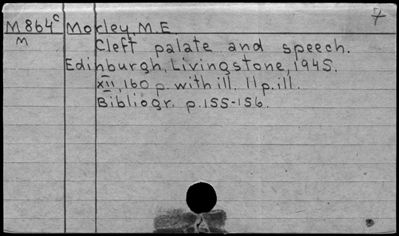 7
M864c Morley, M.E
M Cleft palate and speech.
Edinburgh, Livingstone, 1945.
XII, 160 p. with ill. 11 p. ill.
Bibliogr. p. 155-156.